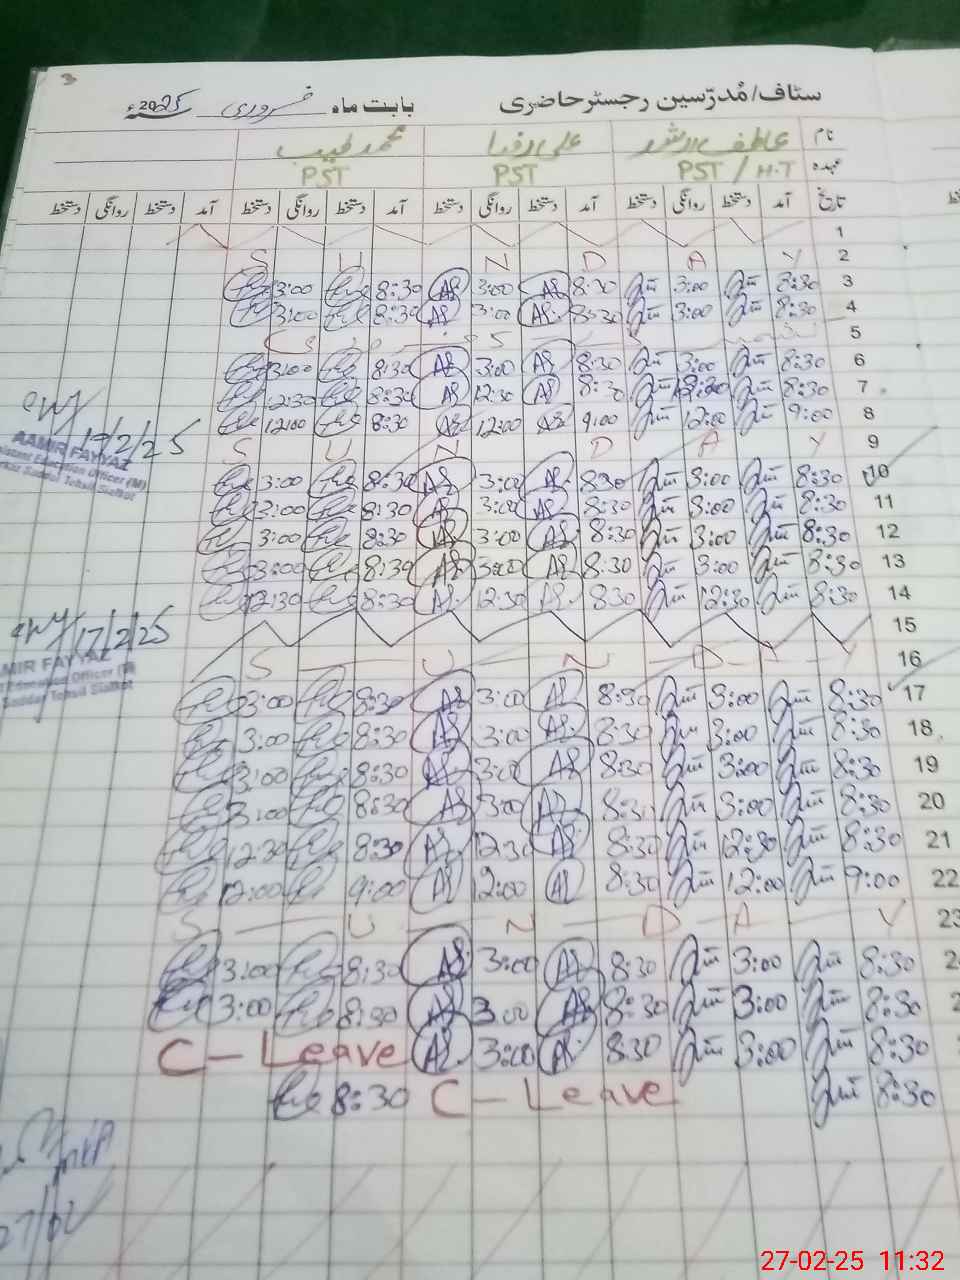 3
سٹاف/مُدرّسین رجسٹر حاضری بابت ماہ فروری 2025ء
نام عاطف ارشد علی رضا محمد طیب
عہدہ PST / H.T PST PST
تاریخ آمد دستخط روانگی دستخط آمد دستخط روانگی دستخط آمد دستخط روانگی دستخط آمد دستخط روانگی دستخط
1
2 S U N D A Y
3 3:00 8:30 AR 3:00 AR 8:30 3:00 8:30
4 3:00 8:30 AR 3:00 AR 8:30 3:00 8:30
5
6 3:00 8:30 AR 3:00 AR 8:30 3:00 8:30
7 12:30 8:30 AR 12:30 AR 8:30 12:30 8:30
8 12:00 8:30 AR 12:00 AR 9:00 12:00 9:00
9 S U N D A Y
19/2/25
AAMIR FAYYAZ
Assistant Education Officer (M)
Markaz Saddar Tehsil Sialkot
10 3:00 8:30 AR 3:00 AR 8:30 3:00 8:30
11 3:00 8:30 AR 3:00 AR 8:30 3:00 8:30
12 3:00 8:30 AR 3:00 AR 8:30 3:00 8:30
13 3:00 8:30 AR 3:00 AR 8:30 3:00 8:30
14 12:30 8:30 AR 12:30 AR 8:30 12:30 8:30
15
17/2/25
AMIR FAYYAZ
Education Officer (M)
Saddar Tehsil Sialkot
16 S U N D A Y
17 3:00 8:30 AR 3:00 AR 8:30 3:00 8:30
18 3:00 8:30 AR 3:00 AR 8:30 3:00 8:30
19 3:00 8:30 AR 3:00 AR 8:30 3:00 8:30
20 3:00 8:30 AR 3:00 AR 8:30 3:00 8:30
21 12:30 8:30 AR 12:30 AR 8:30 12:30 8:30
22 12:00 9:00 AR 12:00 AR 8:30 12:00 9:00
23 S U N D A Y
3:00 8:30 AR 3:00 AR 8:30 3:00 8:30
3:00 8:30 AR 3:00 AR 8:30 3:00 8:30
C - Leave AR 3:00 AR 8:30 3:00 8:30
8:30 C - Leave 8:30
27/02
27-02-25 11:32